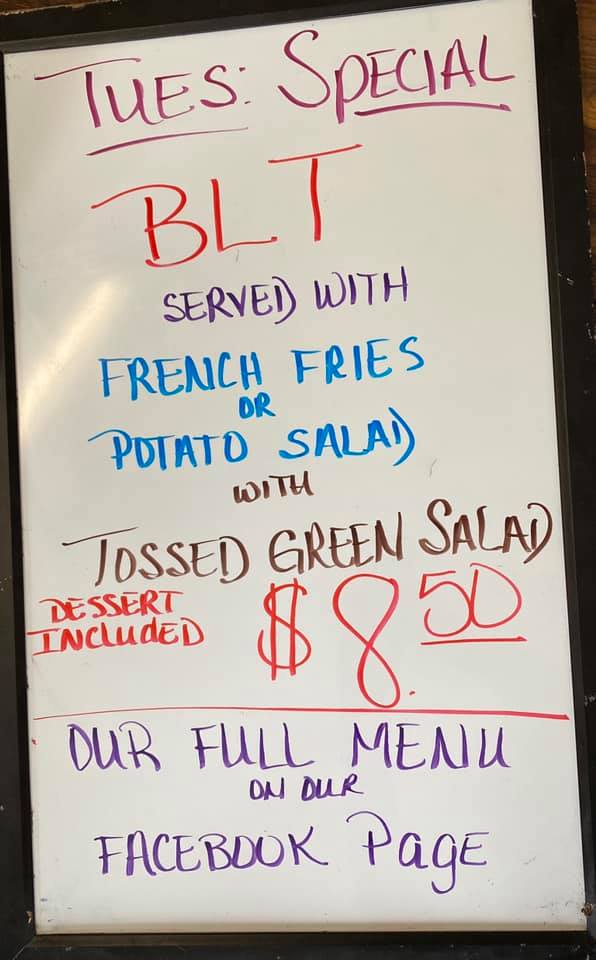 TUES: SPECIAL
BLT
SERVED WITH
FRENCH FRIES
OR
POTATO SALAD
WITH
TOSSED GREEN SALAD
DESSERT
INCLUDED
$8.50
OUR FULL MENU
ON OUR
FACEBOOK Page